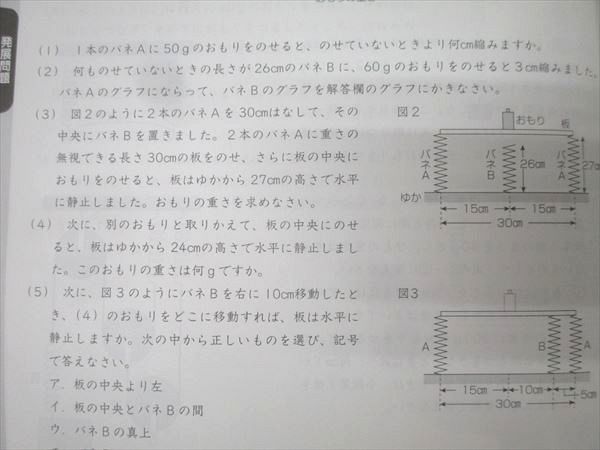 発展問題
(1) 1本のバネAに50gのおもりをのせると、のせていないときより何cm縮みますか。
(2) 何ものせていないときの長さが26cmのバネBに、60gのおもりをのせると3cm縮みました。
バネAのグラフにならって、バネBのグラフを解答欄のグラフにかきなさい。
(3) 図2のように2本のバネAを30cmはなして、その
中央にバネBを置きました。2本のバネAに重さの
無視できる長さ30cmの板をのせ、さらに板の中央に
おもりをのせると、板はゆかから27cmの高さで水平
に静止しました。おもりの重さを求めなさい。
(4) 次に、別のおもりと取りかえて、板の中央にのせ
ると、板はゆかから24cmの高さで水平に静止しまし
た。このおもりの重さは何gですか。
(5) 次に、図3のようにバネBを右に10cm移動したと
き、(4)のおもりをどこに移動すれば、板は水平に
静止しますか。次の中から正しいものを選び、記号
で答えなさい。
ア. 板の中央より左
イ. 板の中央とバネBの間
ウ. バネBの真上
図2
おもり
板
バネA
バネB
26cm
バネA
27cm
ゆか
15cm
15cm
30cm
図3
A
B
A
15cm
10cm
5cm
30cm